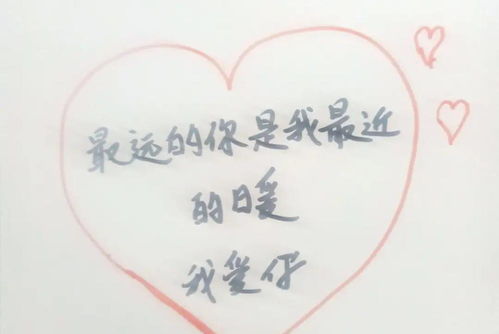 最远的你是我最近
的日爱
我爱你